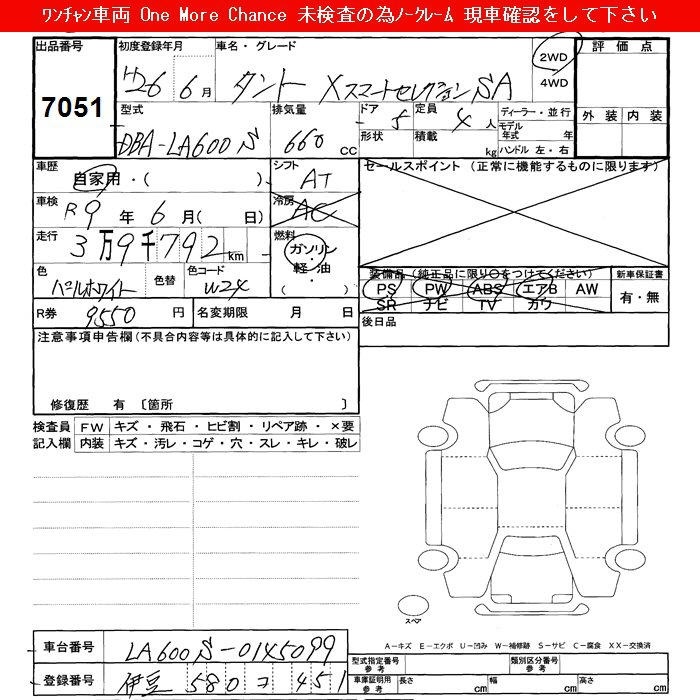 ﾜﾝﾁｬﾝ車両 One More Chance 未検査の為ﾉｰｸﾚｰﾑ 現車確認をして下さい
出品番号 初度登録年月 車名・グレード 2WD 評価点
7051 H26 6月 タント XスマートセレクションSA 4WD
型式 排気量 ドア 5 定員 4人 ディーラー・並行 外装 内装
DBA-LA600S 660cc 形状 積載 kg モデル年式 年
ハンドル 左・右
車歴 自家用・( ) シフト AT セールスポイント(正常に機能するものに限ります)
車検 R9年6月( 日) 冷房 AC
走行 3万9千792km 燃料 ガソリン・軽油・( )
色 パールホワイト 色替 色コード W24
装備品(純正品に限り○をつけてください) 新車保証書
PS PW ABS エアB AW 有・無
SR ナビ TV カワ
R券 9550円 名変期限 月 日 後日品
注意事項申告欄(不具合内容等は具体的に記入して下さい)
修復歴 有 〔箇所 〕
検査員 FW キズ・飛石・ヒビ割・リペア跡・×要
記入欄 内装 キズ・汚レ・コゲ・穴・スレ・キレ・破レ
スペア
A－キズ E－エクボ U－凹み W－補修跡 S－サビ C－腐食 XX－交換済
車台番号 LA600S-0145099 型式指定番号 参考 類別区分番号 参考
登録番号 伊豆 580 コ 451 車庫証明用 参考 長さ cm 幅 cm 高さ cm